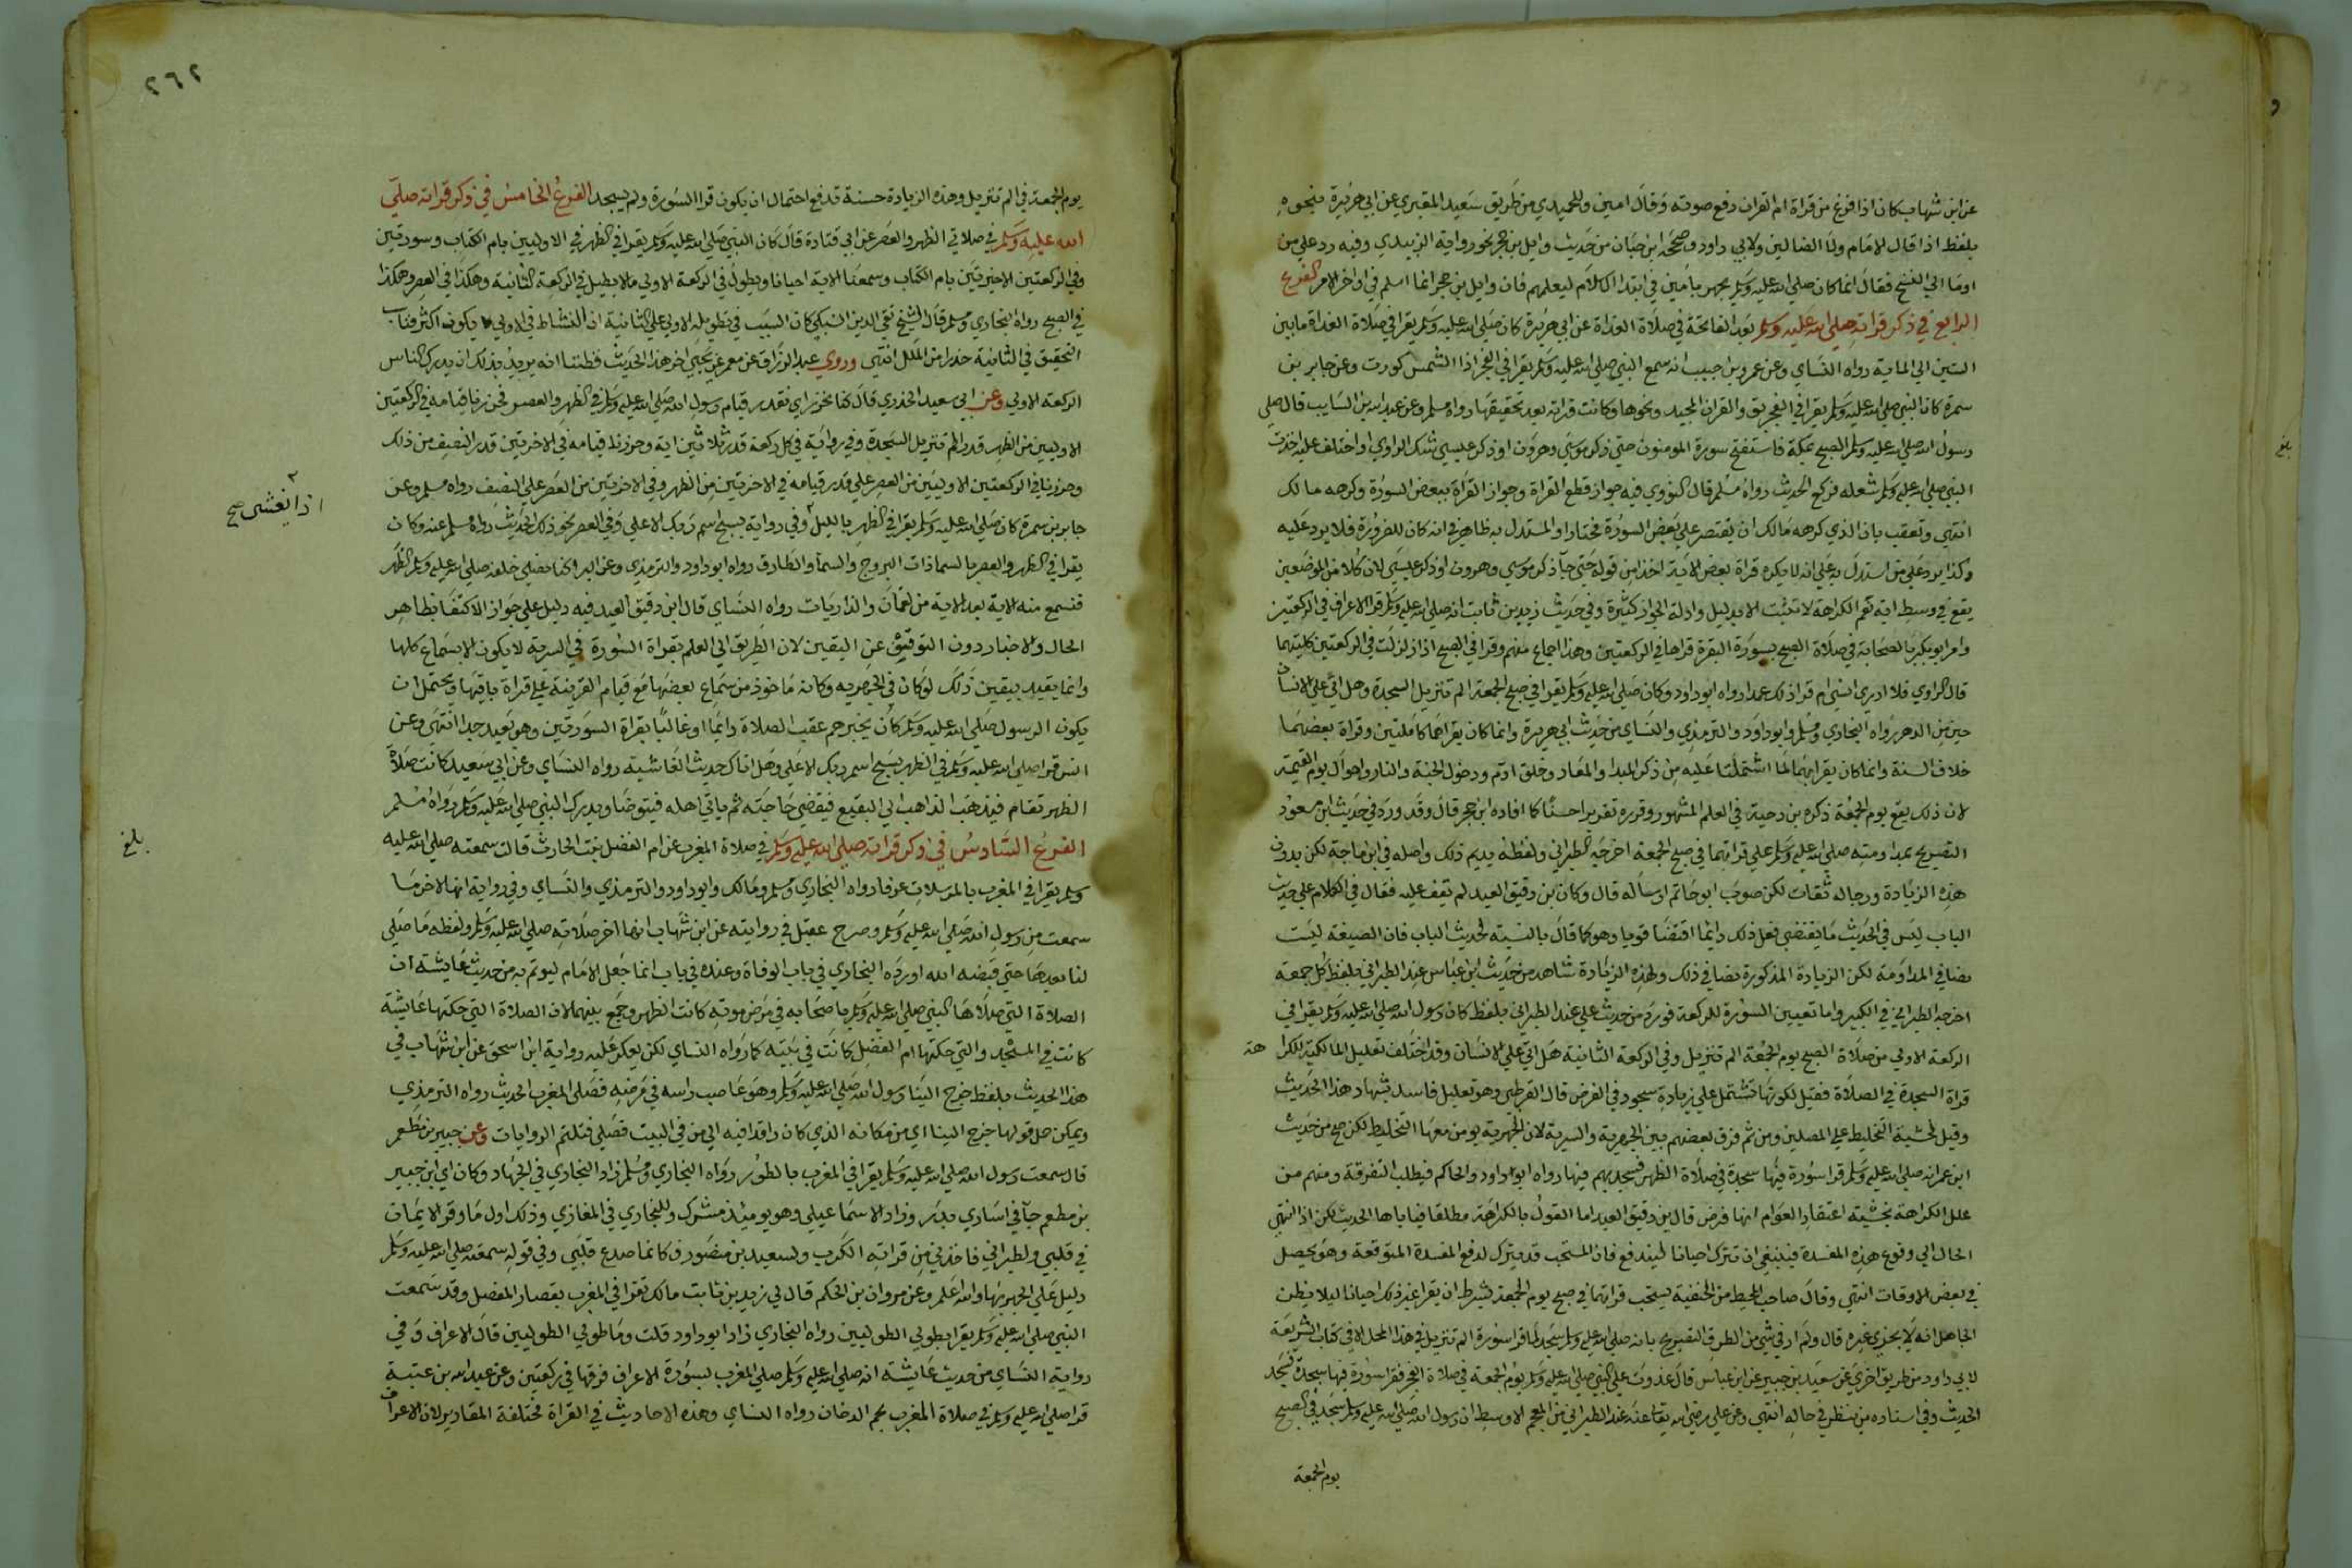 عن ابن شهاب كان اذا فرغ من قراة ام القران رفع صوته وقال امين وللحميدي من طريق سعيد المقبري عن ابي هريرة نحوه
بلفظ اذا قال الامام ولا الضالين ولابي داود وصححه ابن حبان من حديث وايل بن حجر نحو رواية الزبيدي وفيه رد علي من
اوما الي النسخ فقال انما كان صلي الله عليه وسلم يجهر بامين في ابتدا الاسلام ليعلمهم فان وايل بن حجر انما اسلم في اواخر الامر الفرع
الرابع في ذكر قراته صلي الله عليه وسلم بعد الفاتحة في صلاة الغداة عن ابي هريرة كان صلي الله عليه وسلم يقرا في صلاة الغداة ما بين
الستين الي الماية رواه النساي وعن عمرو بن حبيب انه سمع النبي صلي الله عليه وسلم يقرا في الفجر اذا الشمس كورت وعن جابر بن
سمرة كان النبي صلي الله عليه وسلم يقرا في الفجر بق والقران المجيد ونحوها وكانت قراته بعد تخفيفا رواه مسلم وعن عبد الله بن السايب قال صلي
رسول الله صلي الله عليه وسلم الصبح بمكة فاستفتح سورة المومنون حتي ذكر موسي وهرون او ذكر عيسي شك الراوي او اختلف عليه اخذت
النبي صلي الله عليه وسلم سعلة فركع الحديث رواه مسلم قال النووي فيه جواز قطع القراة وجواز القراة ببعض السورة وكرهه مالك
انتهي وتعقب بان الذي كرهه مالك ان يقتصر علي بعض السورة مختارا والمستدل به ظاهر في انه كان للضرورة فلا يرد عليه
وكذا يرد علي من استدل به علي انه لا يكره قراة بعض الاية اخذا من قوله حتي جا ذكر موسي وهرون او ذكر عيسي لان كلا من الموضعين
يقع في وسط اية نعم الكراهة لا تثبت الا بدليل وادلة الجواز كثيرة وفي حديث زيد بن ثابت انه صلي الله عليه وسلم قرا الاعراف في الركعتين
وام ابو بكر بالصحابة في صلاة الصبح بسورة البقرة قراها في الركعتين وهذا اجماع منهم وقرا في الصبح اذا زلزلت في الركعتين كلتيهما
قال الراوي فلا ادري انسي ام قرا ذلك عمدا رواه ابو داود وكان صلي الله عليه وسلم يقرا في صبح الجمعة الم تنزيل السجدة وهل اتي علي الانسان
حين من الدهر رواه البخاري ومسلم وابو داود والترمذي والنساي من حديث ابي هريرة وانما كان يقراهما كاملتين وقراة بعضهما
خلاف السنة وانما كان يقرا بهما لما اشتملتا عليه من ذكر المبدا والمعاد وخلق ادم ودخول الجنة والنار واحوال يوم القيمة
لان ذلك يقع يوم الجمعة ذكره بن دحية في العلم المشهور وقرره تقريرا حسنا كما افاده ابن حجر قال وقد ورد في حديث ابن مسعود
التصريح بمداومته صلي الله عليه وسلم علي قراتهما في صبح الجمعة اخرجه الطبراني ولفظه يديم ذلك واصله في ابن ماجة لكن بدون
هذه الزيادة ورجاله ثقات لكن صوب ابو حاتم ارساله قال وكان بن دقيق العيد لم يقف عليه فقال في الكلام علي حديث
الباب ليس في الحديث ما يقتضي فعل ذلك دايما اقتضا قويا وهو كما قال بالنسبة لحديث الباب فان الصيغة ليست
نصا في المداومة لكن الزيادة المذكورة نصا في ذلك ولهذه الزيادة شاهد من حديث ابن عباس عند الطبراني بلفظ كل جمعة
اخرجه الطبراني في الكبير واما تعيين السورة للركعة فورد من حديث علي عند الطبراني بلفظ كان رسول الله صلي الله عليه وسلم يقرا في
الركعة الاولي من صلاة الصبح يوم الجمعة الم تنزيل وفي الركعة الثانية هل اتي علي الانسان وقد اختلف تعليل المالكية لكرا هة
قراة السجدة في الصلاة فقيل لكونها تشتمل علي زيادة سجود في الفرض قال القرطبي وهو تعليل فاسد بشهادة هذا الحديث
وقيل لخشية التخليط علي المصلين ومن ثم فرق بعضهم بين الجهرية والسرية لان الجهرية يومن معها التخليط لكن صح من حديث
ابن عمر انه صلي الله عليه وسلم قرا سورة فيها سجدة في صلاة الظهر فسجد بهم فيها رواه ابو داود والحاكم فبطلت التفرقة ومنهم من
علل الكراهة بخشية اعتقاد العوام انها فرض قال بن دقيق العيد اما القول بالكراهة مطلقا فياباها الحديث لكن اذا انتهي
الحال الي وقوع هذه المفسدة فينبغي ان تترك احيانا ليندفع فان المستحب قد يترك لدفع المفسدة المتوقعة وهو يحصل
في بعض الاوقات انتهي وقال صاحب المحيط من الحنفية يستحب قراتهما في صبح يوم الجمعة بشرط ان يقرا غير ذلك احيانا ليلا يظن
الجاهل انه لا يجزي غيره قال ولم ار في شي من الطرق التصريح بانه صلي الله عليه وسلم سجد لما قرا سورة الم تنزيل في هذا المحل الا في كتاب الشريعة
لابي داود من طريق اخري عن سعيد بن جبير عن ابن عباس قال غدوت علي النبي صلي الله عليه وسلم يوم الجمعة في صلاة الفجر فقرا سورة فيها سجدة فسجد
الحديث وفي اسناده من ينظر في حاله انتهي وعن علي رضي الله تعالي عنه عند الطبراني في المعجم الاوسط ان رسول الله صلي الله عليه وسلم سجد في الصبح
يوم الجمعة
٢٦٢
يوم الجمعة في الم تنزيل وهذه الزيادة حسنة قد فع احتمال ان يكون قرا السورة ولم يسجد الفرع الخامس في ذكر قراته صلي
الله عليه وسلم في صلاتي الظهر والعصر عن ابي قتادة قال كان النبي صلي الله عليه وسلم يقرا في الظهر في الاوليين بام الكتاب وسورتين
وفي الركعتين الاخيرتين بام الكتاب وسمعنا الاية احيانا ويطول في الركعة الاولي مالا يطيل في الركعة الثانية وهكذا في العصر وهكذا
في الصبح رواه البخاري ومسلم قال الشيخ تقي الدين السبكي كان السبب في تطويله الاولي علي الثانية ان النشاط في الاولي يكون اكثر فناسب
التخفيف في الثانية حذرا من الملل انتهي وروي عبد الرزاق عن معمر عن يحيي اخر هذا الحديث فظننا انه يريد بذلك ان يدرك الناس
الركعة الاولي وعن ابي سعيد الخدري قال كنا نحزر اي نقدر قيام رسول الله صلي الله عليه وسلم في الظهر والعصر فحزرنا قيامه في الركعتين
الاوليين من الظهر قدر الم تنزيل السجدة وفي رواية في كل ركعة قدر ثلاثين اية وحزرنا قيامه في الاخرتين قدر النصف من ذلك
وحزرنا في الركعتين الاوليين من العصر علي قدر قيامه في الاخرتين من الظهر وفي الاخرتين من العصر علي النصف رواه مسلم وعن
جابر بن سمرة كان صلي الله عليه وسلم يقرا في الظهر بالليل وفي رواية بسبح اسم ربك الاعلي وفي العصر نحو ذلك الحديث رواه مسلم عنه وكان
اذا يغشى صح
يقرا في الظهر والعصر بالسما ذات البروج والسما والطارق رواه ابو داود والترمذي وعن البرا كنا نصلي خلفه صلي الله عليه وسلم الظهر
فنسمع منه الاية بعد الاية من لقمان والذاريات رواه النساي قال ابن دقيق العيد فيه دليل علي جواز الاكتفا بظاهر
الحال والاخبار دون التوقيف عن اليقين لان الطريق الي العلم بقراة السورة في السرية لا يكون الا بسماع كلها
وانما يفيد بيقين ذلك لو كان في الجهرية وكانه ماخوذ من سماع بعضها مع قيام القرينة علي قراة باقيها ويحتمل ان
يكون الرسول صلي الله عليه وسلم كان يخبرهم عقب الصلاة دايما او غالبا بقراة السورتين وهو بعيد جدا انتهي وعن
انس قرا صلي الله عليه وسلم في الظهر بسبح اسم ربك الاعلي وهل اتاك حديث الغاشية رواه النساي وعن ابي سعيد كانت صلاة
الظهر تقام فيذهب الذاهب الي البقيع فيقضي حاجته ثم ياتي اهله فيتوضا ويدرك النبي صلي الله عليه وسلم رواه مسلم
الفرع السادس في ذكر قراته صلي الله عليه وسلم في صلاة المغرب عن ام الفضل بنت الحارث قالت سمعته صلي الله عليه
بلغ
وسلم يقرا في المغرب بالمرسلات عرفا رواه البخاري ومسلم ومالك وابو داود والترمذي والنساي وفي رواية انها لاخر ما
سمعت من رسول الله صلي الله عليه وسلم وصرح عقيل في روايته عن ابن شهاب انها اخر صلاته صلي الله عليه وسلم ولفظه ما صلي
لنا بعدها حتي قبضه الله اورده البخاري في باب الوفاة وعنده في باب انما جعل الامام ليوتم به من حديث عايشة ان
الصلاة التي صلاها النبي صلي الله عليه وسلم باصحابه في مرض موته كانت الظهر وجمع بينهما لان الصلاة التي حكتها عايشة
كانت في المسجد والتي حكتها ام الفضل كانت في بيته كما رواه النساي لكن يعكر عليه رواية ابن اسحق عن ابن شهاب في
هذا الحديث بلفظ خرج الينا رسول الله صلي الله عليه وسلم وهو عاصب راسه في مرضه فصلي المغرب الحديث رواه الترمذي
ويمكن حمل قولها خرج الينا اي من مكانه الذي كان راقدا فيه الي من في البيت فصلي فتلتم الروايات وعن جبير بن مطعم
قال سمعت رسول الله صلي الله عليه وسلم يقرا في المغرب بالطور رواه البخاري ومسلم زاد البخاري في الجهاد وكان اي ابن جبير
بن مطعم جا في اساري بدر وزاد الاسماعيلي وهو يوميذ مشرك وللبخاري في المغازي وذلك اول ما وقر الايمان
في قلبي ولطبراني فاخذني من قراته الكرب ولسعيد بن منصور فكانما صدع قلبي وفي قوله سمعته صلي الله عليه وسلم
دليل علي الجهر بها والله اعلم وعن مروان بن الحكم قال لي زيد بن ثابت مالك تقرا في المغرب بقصار المفصل وقد سمعت
النبي صلي الله عليه وسلم يقرا بطولي الطوليين رواه البخاري زاد ابو داود قلت وما طولي الطوليين قال الاعراف وفي
رواية النساي من حديث عايشة انه صلي الله عليه وسلم صلي المغرب بسورة الاعراف فرقها في ركعتين وعن عبد الله بن عتبة
قرا صلي الله عليه وسلم في صلاة المغرب بحم الدخان رواه النساي وهذه الاحاديث في القراة مختلفة المقادير لان الاعراف